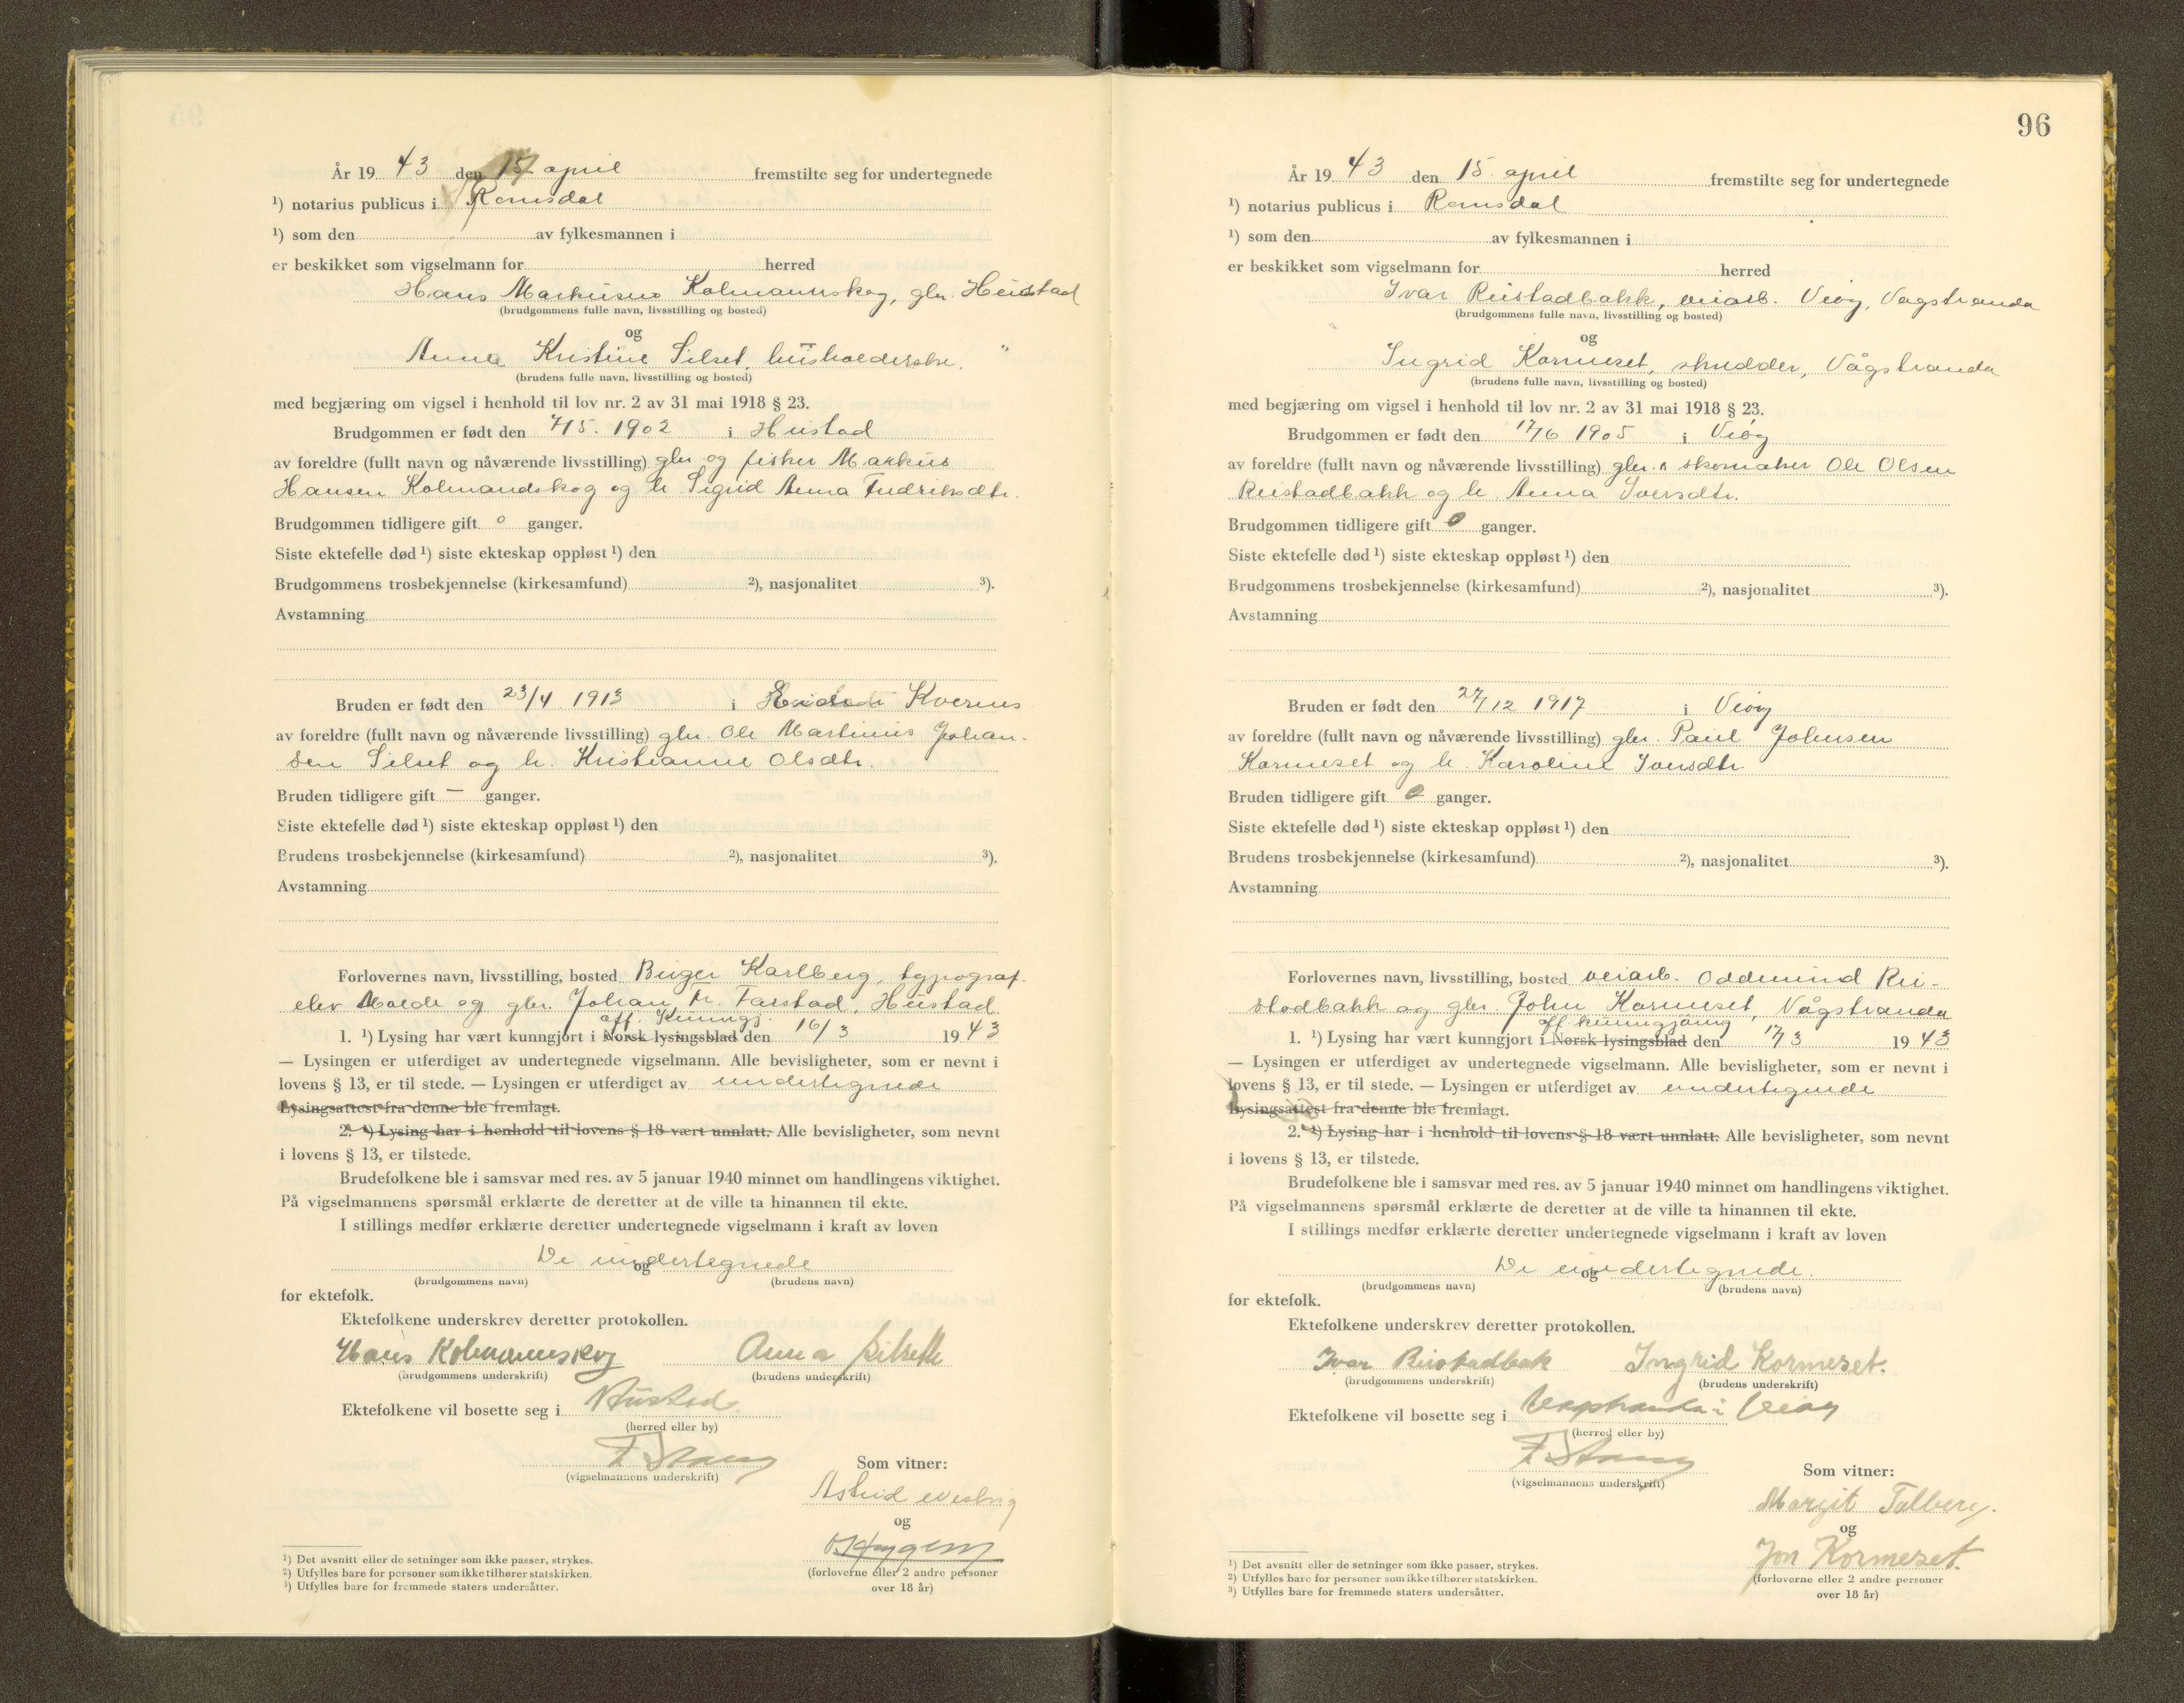 År 19 43 den 15 april fremstilte seg for undertegnede
¹) notarius publicus i Romsdal
¹) som den av fylkesmannen i
er beskikket som vigselmann for herred
Hans Markusen Kolmannskog, gbr. Hustad
(brudgommens fulle navn, livsstilling og bosted)
og
Anna Kristine Silset, husholderske. "
(brudens fulle navn, livsstilling og bosted)
med begjæring om vigsel i henhold til lov nr. 2 av 31 mai 1918 § 23.
Brudgommen er født den 7/5. 1902 i Hustad
av foreldre (fullt navn og nåværende livsstilling) gbr og fisker Markus
Hansen Kolmandskog og h. Sigrid Anna Fredriksdtr.
Brudgommen tidligere gift 0 ganger.
Siste ektefelle død ¹) siste ekteskap oppløst ¹) den
Brudgommens trosbekjennelse (kirkesamfund) ²), nasjonalitet ³).
Avstamning
Bruden er født den 23/4 1913 i Kvernes
av foreldre (fullt navn og nåværende livsstilling) gbr. Ole Martinus Johan-
sen Silset og h. Kristianne Olsdtr.
Bruden tidligere gift — ganger.
Siste ektefelle død ¹) siste ekteskap oppløst ¹) den
Brudens trosbekjennelse (kirkesamfund) ²), nasjonalitet ³).
Avstamning
Forlovernes navn, livsstilling, bosted Birger Karlberg, typograf-
elev Molde og gbr. Johan Fr. Farstad, Hustad
off. Kunngj.
1. ¹) Lysing har vært kunngjort i Norsk lysingsblad den 16/3 19 43
— Lysingen er utferdiget av undertegnede vigselmann. Alle bevisligheter, som er nevnt i
lovens § 13, er til stede. — Lysingen er utferdiget av undertegnede
Lysingsattest fra denne ble fremlagt.
2. ¹) Lysing har i henhold til lovens § 18 vært unnlatt. Alle bevisligheter, som nevnt
i lovens § 13, er tilstede.
Brudefolkene ble i samsvar med res. av 5 januar 1940 minnet om handlingens viktighet.
På vigselmannens spørsmål erklærte de deretter at de ville ta hinannen til ekte.
I stillings medfør erklærte deretter undertegnede vigselmann i kraft av loven
De undertegnede
og
(brudgommens navn) (brudens navn)
for ektefolk.
Ektefolkene underskrev deretter protokollen.
Hans Kolmannskog Anna Silseth
(brudgommens underskrift) (brudens underskrift)
Ektefolkene vil bosette seg i Hustad
(herred eller by)
F Stang
(vigselmannens underskrift) Som vitner:
Astrid
og
(forloverne eller 2 andre personer
over 18 år)
¹) Det avsnitt eller de setninger som ikke passer, strykes.
²) Utfylles bare for personer som ikke tilhører statskirken.
³) Utfylles bare for fremmede staters undersåtter.
96
År 19 43 den 15. april fremstilte seg for undertegnede
¹) notarius publicus i Romsdal
¹) som den av fylkesmannen i
er beskikket som vigselmann for herred
Ivar Reistadbakk, veiarb. Veøy, Vågstranda
(brudgommens fulle navn, livsstilling og bosted)
og
Ingrid Kormeset, skredder, Vågstranda
(brudens fulle navn, livsstilling og bosted)
med begjæring om vigsel i henhold til lov nr. 2 av 31 mai 1918 § 23.
Brudgommen er født den 17/6 1905 i Veøy
av foreldre (fullt navn og nåværende livsstilling) gbr. & skomaker Ole Olsen
Reistadbakk og h. Anna Iversdtr.
Brudgommen tidligere gift 0 ganger.
Siste ektefelle død ¹) siste ekteskap oppløst ¹) den
Brudgommens trosbekjennelse (kirkesamfund) ²), nasjonalitet ³).
Avstamning
Bruden er født den 27/12 1917 i Veøy
av foreldre (fullt navn og nåværende livsstilling) gbr. Paul Johnsen
Kormeset og h. Karoline Iversdtr
Bruden tidligere gift 0 ganger.
Siste ektefelle død ¹) siste ekteskap oppløst ¹) den
Brudens trosbekjennelse (kirkesamfund) ²), nasjonalitet ³).
Avstamning
Forlovernes navn, livsstilling, bosted veiarb. Oddmund Rei-
stadbakk og gbr. John Kormeset, Vågstranda
off kunngjøring
1. ¹) Lysing har vært kunngjort i Norsk lysingsblad den 17/3 19 43
— Lysingen er utferdiget av undertegnede vigselmann. Alle bevisligheter, som er nevnt i
lovens § 13, er til stede. — Lysingen er utferdiget av undertegnede
Lysingsattest fra denne ble fremlagt.
2. ¹) Lysing har i henhold til lovens § 18 vært unnlatt. Alle bevisligheter, som nevnt
i lovens § 13, er tilstede.
Brudefolkene ble i samsvar med res. av 5 januar 1940 minnet om handlingens viktighet.
På vigselmannens spørsmål erklærte de deretter at de ville ta hinannen til ekte.
I stillings medfør erklærte deretter undertegnede vigselmann i kraft av loven
De undertegnede.
og
(brudgommens navn) (brudens navn)
for ektefolk.
Ektefolkene underskrev deretter protokollen.
Ivar Reistadbak Ingrid Kormeset.
(brudgommens underskrift) (brudens underskrift)
Ektefolkene vil bosette seg i Vågstranda i Veøy
(herred eller by)
F Stang
(vigselmannens underskrift) Som vitner:
Margit Talberg.
og
Jon Kormeset.
(forloverne eller 2 andre personer
over 18 år)
¹) Det avsnitt eller de setninger som ikke passer, strykes.
²) Utfylles bare for personer som ikke tilhører statskirken.
³) Utfylles bare for fremmede staters undersåtter.